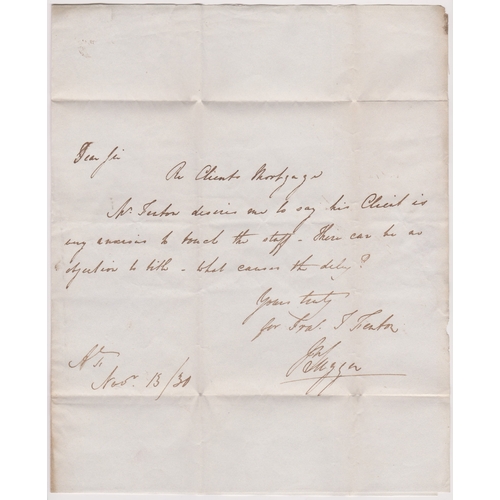 Dear Sir
Re Clients Mortgage
Mr Fenton desires me to say his Client is
very anxious to touch the stuff - There can be no
objection to title - What causes the delay?
Yours truly
for Fras. T Fenton
Nov. 13/30